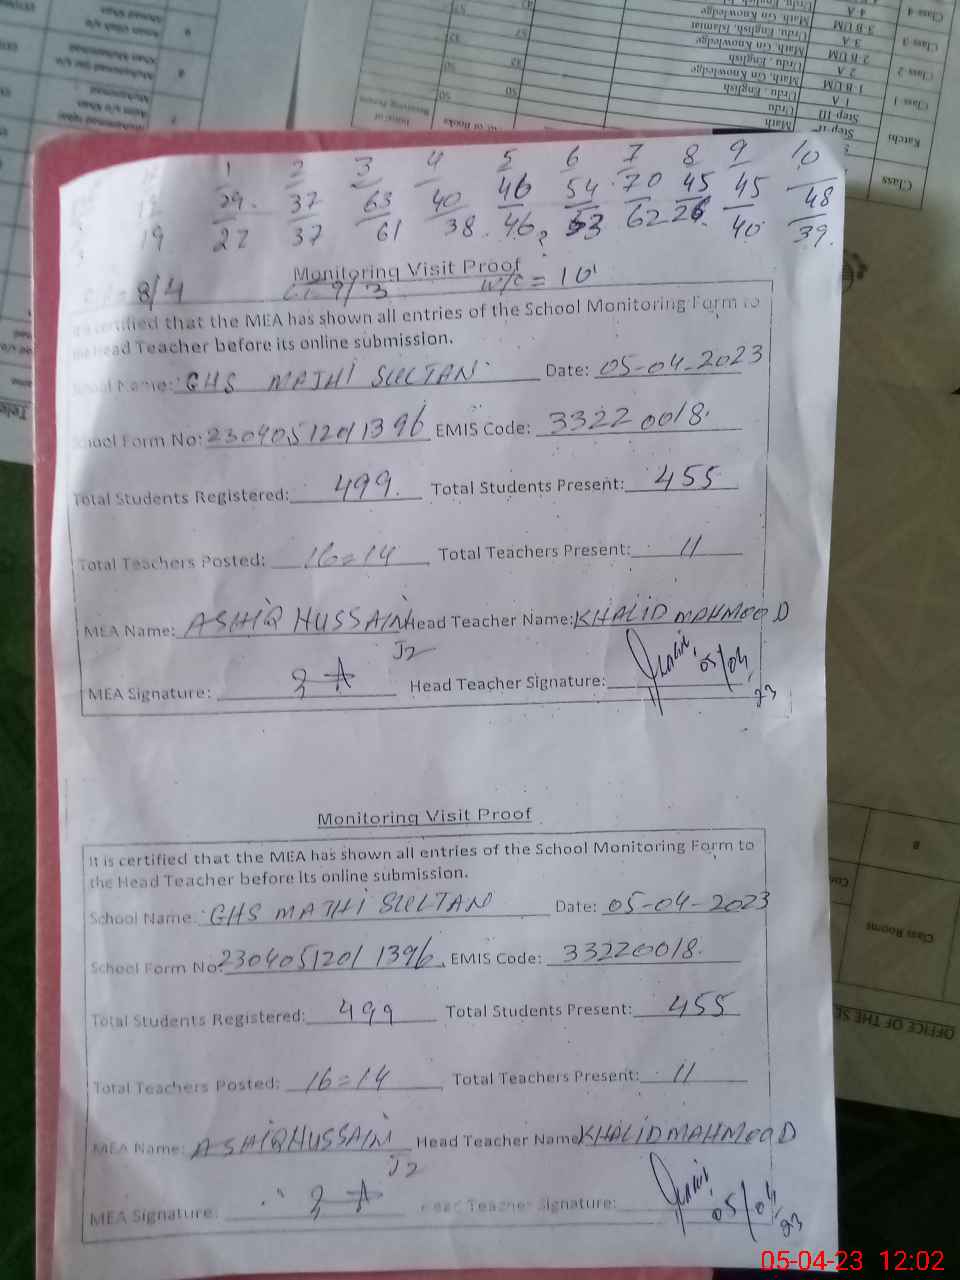 1 2 3 4 5 6 7 8 9 10
12 29 37 63 40 46 54 70 45 45 48
19 27 37 61 38 46 53 62 26 40 39
Monitoring Visit Proof
8/4 9/3 W/C = 10
It is certified that the MEA has shown all entries of the School Monitoring Form to
the Head Teacher before its online submission.
School Name: GHS MAJHI SULTAN Date: 05-04-2023
School Form No: 2304051201396 EMIS Code: 33220018
Total Students Registered: 499 Total Students Present: 455
Total Teachers Posted: 16=14 Total Teachers Present: 11
MEA Name: ASHIQ HUSSAIN Head Teacher Name: KHALID MAHMOOD
J2
MEA Signature: Head Teacher Signature: 05/04/23
Monitoring Visit Proof
It is certified that the MEA has shown all entries of the School Monitoring Form to
the Head Teacher before its online submission.
School Name: GHS MAJHI SULTAN Date: 05-04-2023
School Form No: 2304051201396 EMIS Code: 33220018
Total Students Registered: 499 Total Students Present: 455
Total Teachers Posted: 16=14 Total Teachers Present: 11
MEA Name: ASHIQ HUSSAIN Head Teacher Name: KHALID MAHMOOD
J2
MEA Signature: Head Teacher Signature: 05/04/23
Class
Katchi
Class 1
Class-2
Class-3
Class-4
Step III
1 A
1 B UM
2 A
2 B UM
3 A
3 B UM
4 A
Math
Urdu
Urdu, English
Math, Gn Knowledge
Urdu, English
Math, Gn Knowledge
Urdu, English, Islamiat
Math, Gn Knowledge
Class Rooms
OFFICE OF THE
05-04-23 12:02